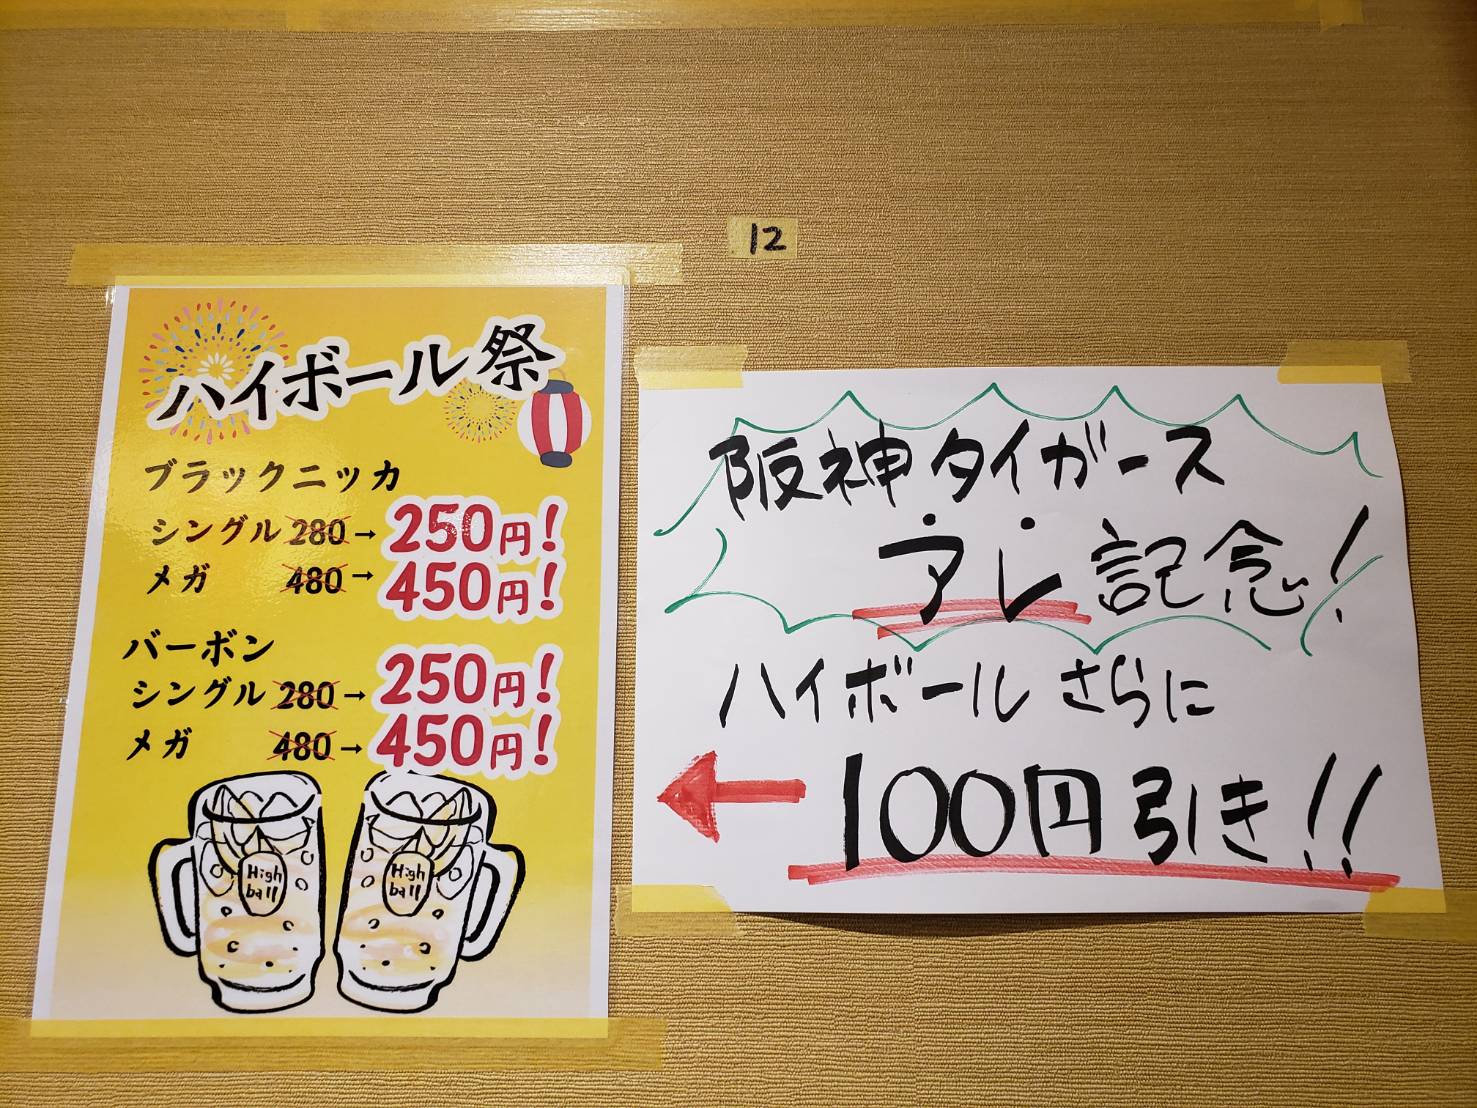 12
ハイボール祭
ブラックニッカ
シングル 280→250円!
メガ 480→450円!
バーボン
シングル 280→250円!
メガ 480→450円!
High
ball
High
ball
阪神タイガース
アレ記念!
ハイボール さらに
100円引き!!